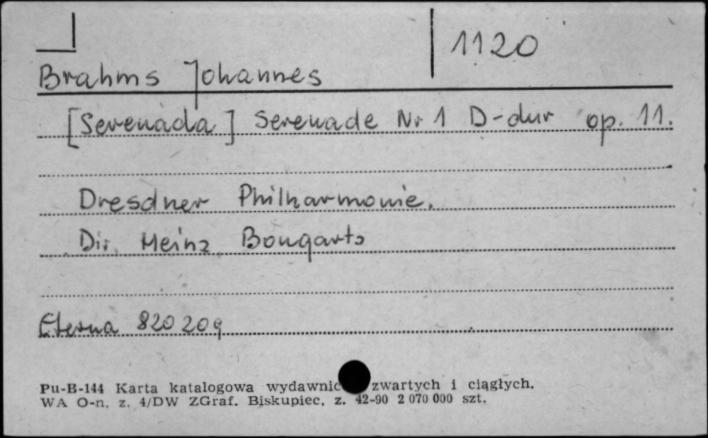 1120
Brahms Johannes
[Serenada] Serenade Nr 1 D-dur op. 11.
Dresdner Philharmonie.
Dir. Heinz Bongarts
Eterna 820 209
Pu-B-144 Karta katalogowa wydawnic zwartych i ciągłych.
WA O-n. z. 4/DW ZGraf. Biskupiec, z. 42-90 2 070 000 szt.